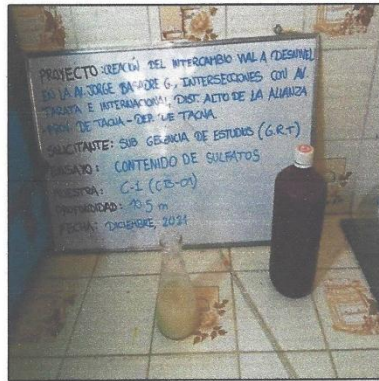 PROYECTO: CREACIÓN DEL INTERCAMBIO VIAL A DESNIVEL
EN LA AV. JORGE BASADRE G., INTERSECCIONES CON AV.
TARATA E INTERNACIONAL, DIST. ALTO DE LA ALIANZA
PROV. DE TACNA - DEP. DE TACNA.
SOLICITANTE: SUB GERENCIA DE ESTUDIOS (G.R.T)
ENSAYO: CONTENIDO DE SULFATOS
MUESTRA: C-1 (CB-01)
PROFUNDIDAD: 10.5 m
FECHA: DICIEMBRE, 2021